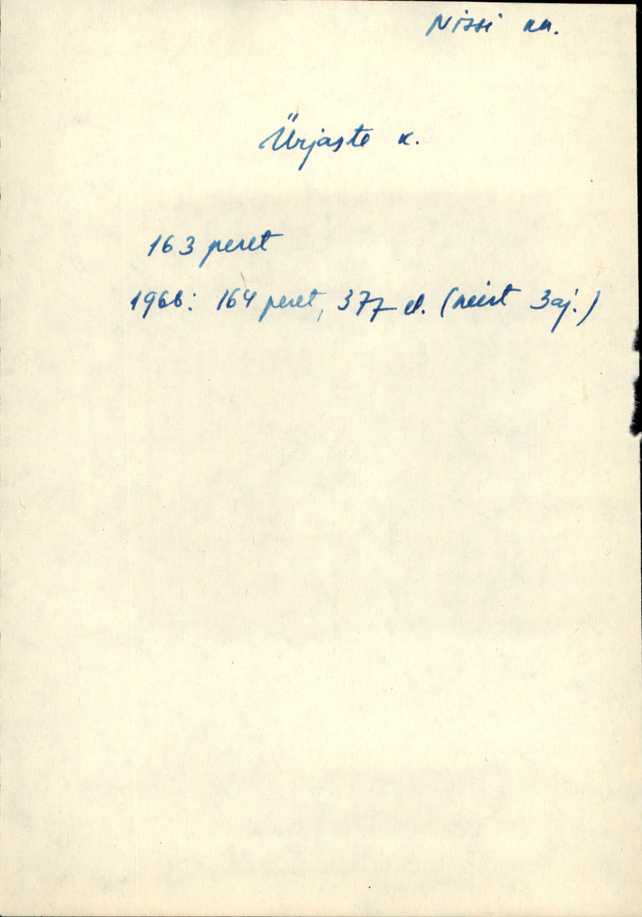 Nissi kn.
Ürjaste k.
163 peret
1966: 164 peret, 377 el. (neist 3 aj.)